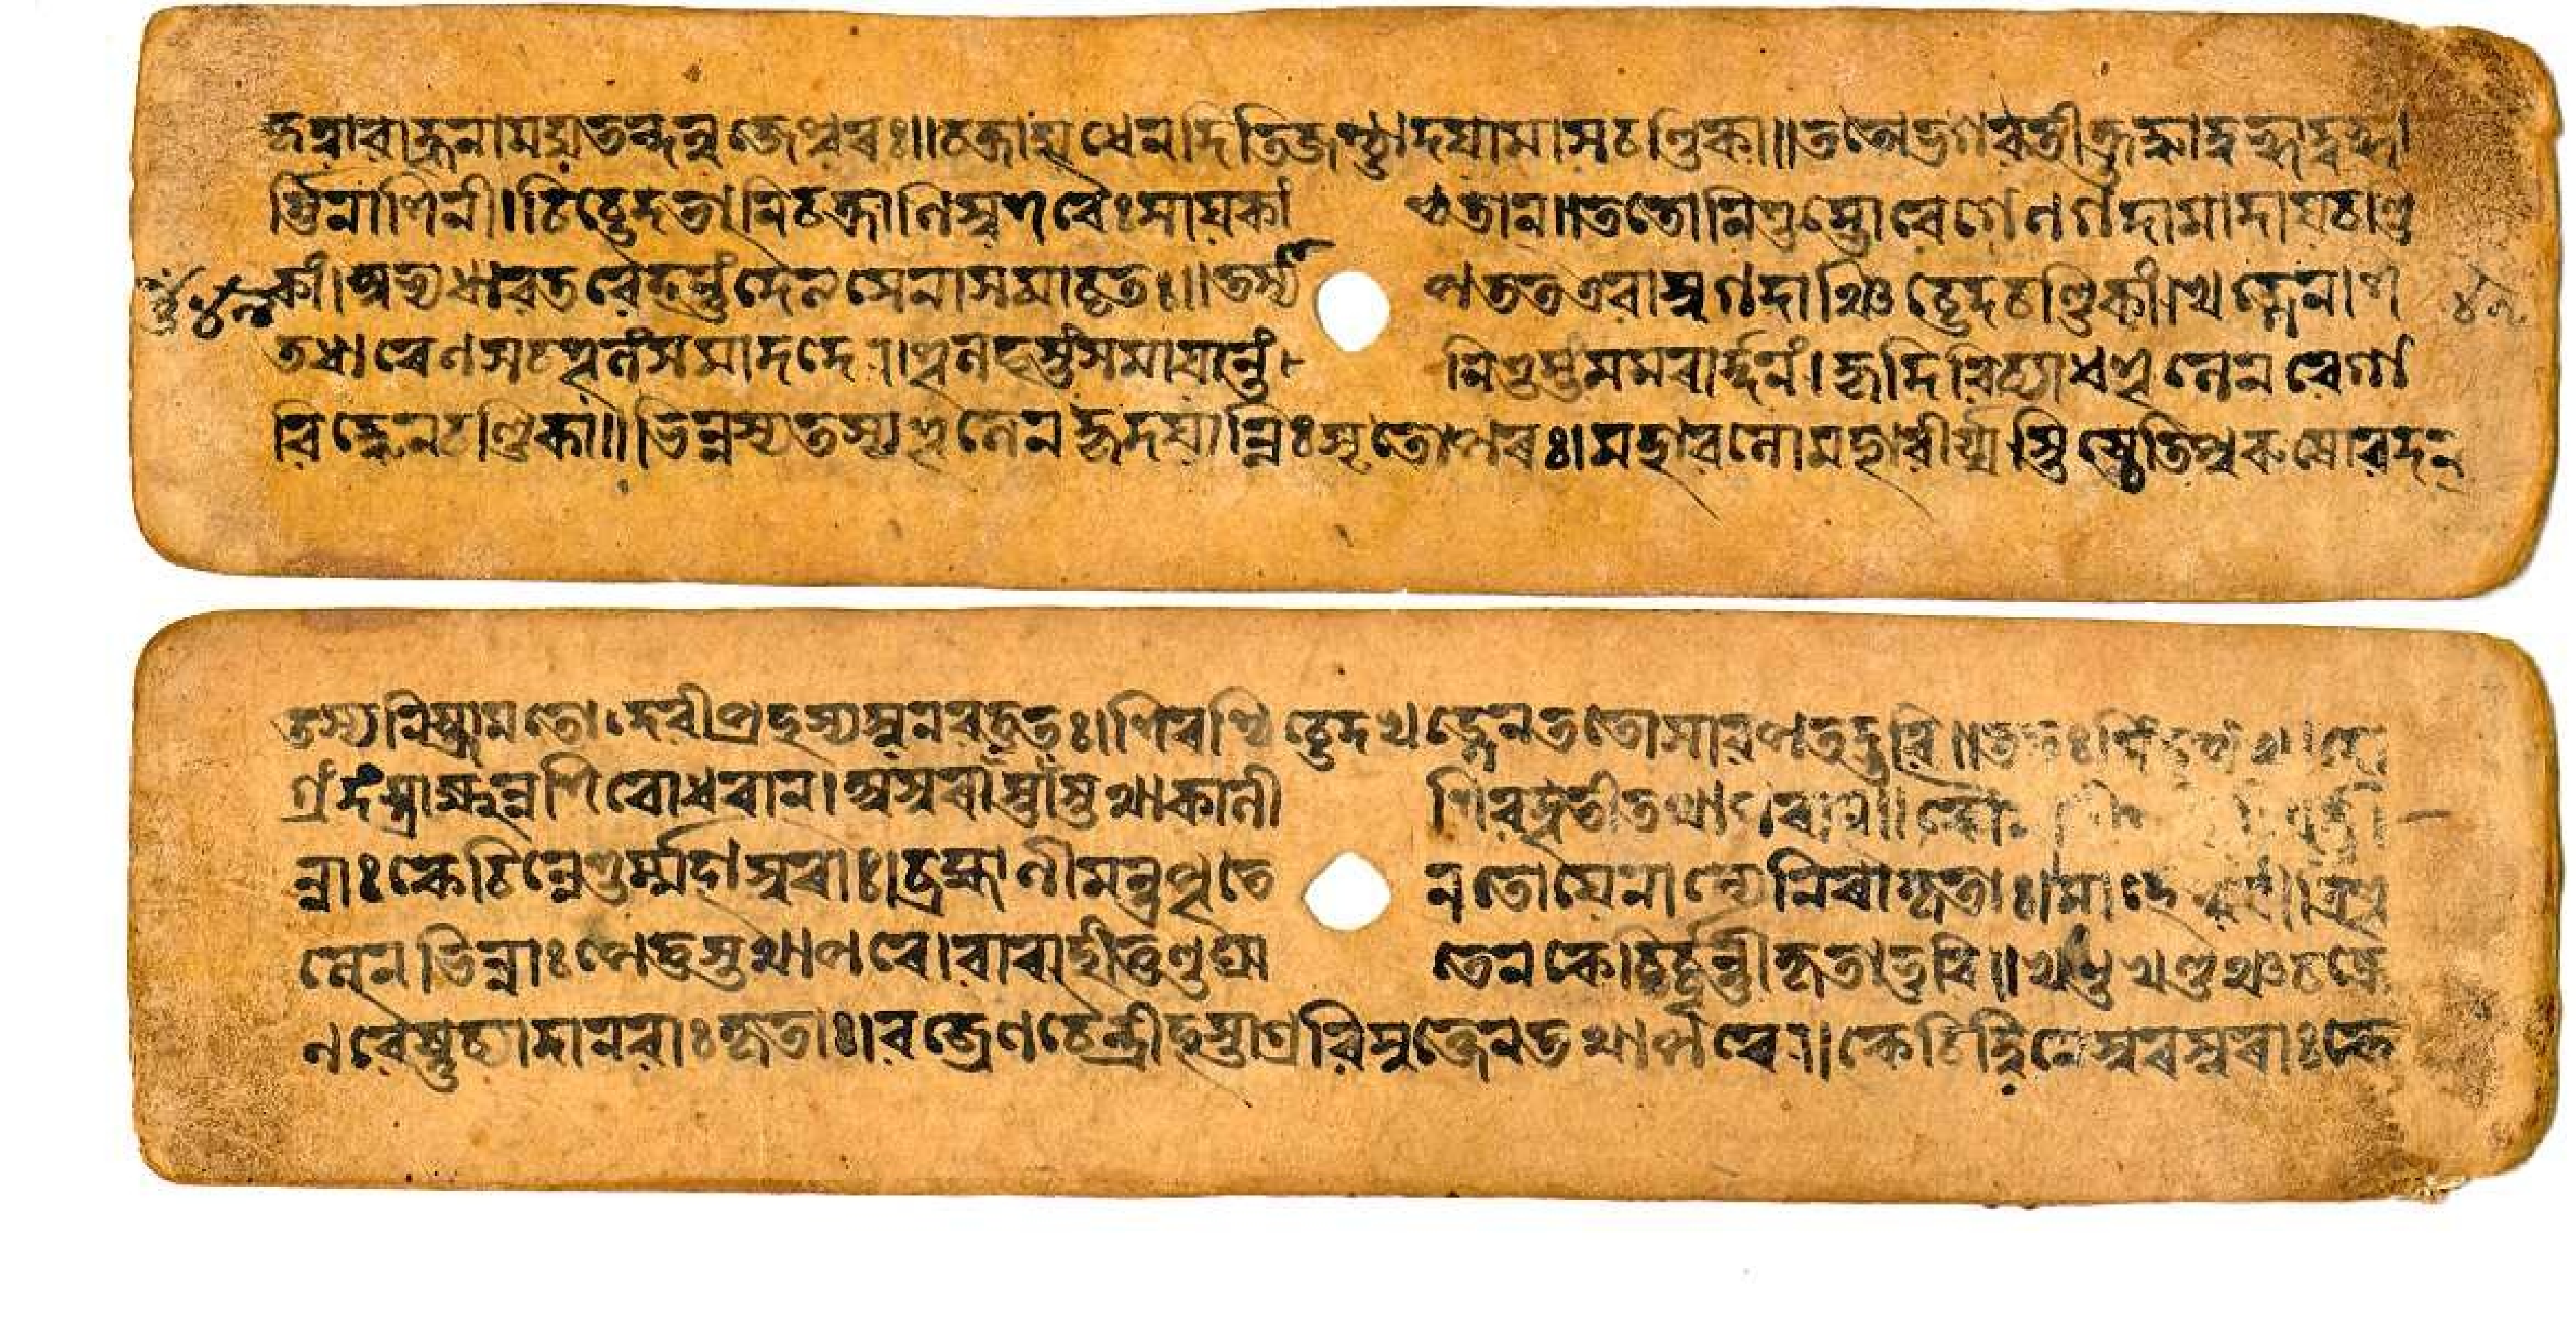 কৃত্বা বাহুনামযুতন্দনুজেশ্বরঃ॥ চক্রাযুধেন দিতিজশ্ছাদযামাস চণ্ডিকা॥ ততো ভগবতী ক্রুদ্ধা দুর্গ্গা দুর্গ্গা
র্ত্তিনাশিনী। চিচ্ছেদ তানি চক্রানি স্বশরৈঃ সাযকাংশ্চ তান॥ ততো নিশুম্ভো বেগেন গদামাদায চাণ্ডি
কাং। অভ্যধাবত বৈ হন্তুং দৈত্যসেনাসমাবৃতঃ॥ তস্যাপতত এবাসু গদাঞ্চিচ্ছেদ চণ্ডিকা। খড্গেন শি
তধারেণ স চ শূলং সমাদদে। শূলহস্তং সমাযান্তং নিশুম্ভমমরার্দ্দনং। হৃদি বিব্যাধ শূলেন বেগা
বিদ্ধেন চণ্ডিকা॥ ভিন্নস্য তস্য শূলেন হৃদযান্নিঃসৃতোপরঃ। মহাবলো মহাবীর্য্যস্তিষ্ঠেতি পুরুষো বদন্
তস্য নিষ্ক্রামতো দেবী প্রহস্য স্বনবত্ততঃ। শিরশ্চিচ্ছেদ খড্গেন ততোসাবপতদ্ভুবি॥ ততঃ
গ্রদংষ্ট্রাক্ষুন্নশিরোধরান। অসুরাংস্তাংস্তথা কালী শিবদূতী তথাপরান॥
ন্নাঃ কেচিন্নেশুর্ম্মহাসুরাঃ। ব্রহ্মাণীমন্ত্রপূতেন তোযেনান্যে নিরাকৃতাঃ। মাহেশ্বরীত্রিশূ
লেন ভিন্নাঃ পেতুস্তথাপরে। বারাহীতুণ্ডঘাতেন কেচিচ্চূর্ণ্ণীকৃতা ভুবি॥ খণ্ডখণ্ডঞ্চ চক্রে
ন বৈষ্ণব্যা দানবাঃ কৃতাঃ। বজ্রেণ চৈন্দ্রীহস্তাগ্রবিমুক্তেন তথাপরে॥ কেচিদ্বিনেসুরসুরাঃ কে